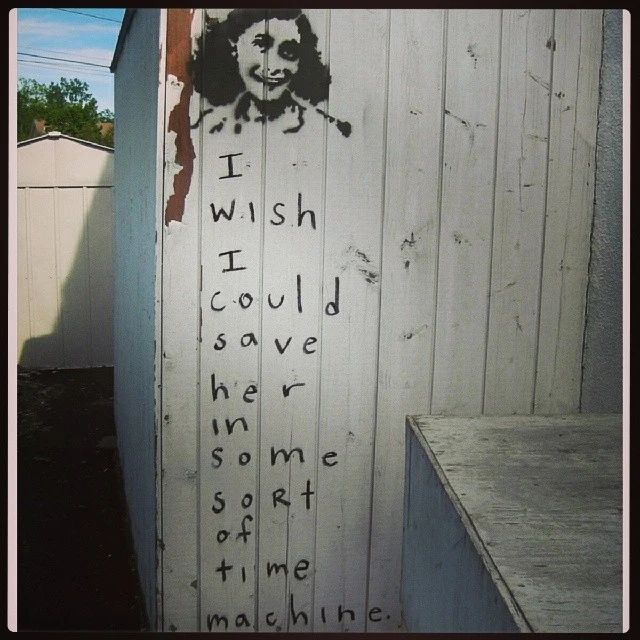 I
wish
I
could
save
her
in
some
sort
of
time
machine.